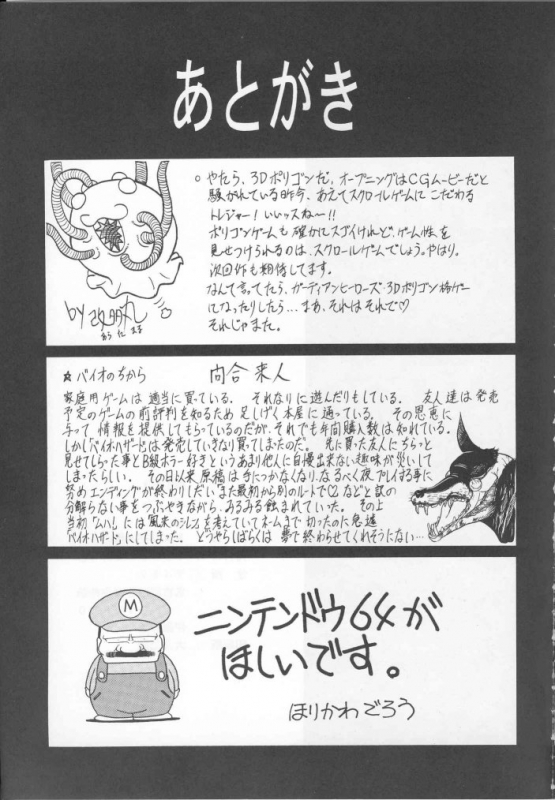 あとがき
。やたら、3Dポリゴンだ、オープニングはCGムービーだと
騒がれている昨今、あえてスクロールゲームにこだわる
トレジャー!いいッスね〜!!
ポリゴンゲームも確かにスゴイけれど、ゲーム性を
見せつけられるのは、スクロールゲームでしょう。やはり。
次回作も期待してます。
なんて言ってたら、ガーディアンヒーローズ・3Dポリゴン格ゲー
になったりしたら…まあ、それはそれで♡
それじゃまた。
by
☆バイオのちから 向合来人
家庭用ゲームは適当に買っている。それなりに遊んだりもしている。友人達は発売
予定のゲームの前評判を知るため足しげく本屋に通っている。その恩恵に
与って情報を提供してもらっているのだが、それでも年間購入数は知れている。
しかし「バイオハザード」は発売していきなり買ってしまったのだ。先に買った友人にちらっと
見せてもらった事とB級ホラー好きというあまり他人に自慢出来ない趣味が災いして
しまったらしい。その日以来原稿は手につかなくなり、なるべく夜プレイする事に
努めエンディングが終わりしだい"また最初から別のルートで♡"などと訳の
分解らない事をつぶやきながら、みるみる蝕まれていった。その上
当初「ムハ!」には風来のシレンを考えていてネームまで切ったのに急遽
「バイオハザード」にしてしまった。どうやらしばらくは夢で終わらせてくれそうにない…
M
ニンテンドウ64が
ほしいです。
ほりかわごろう